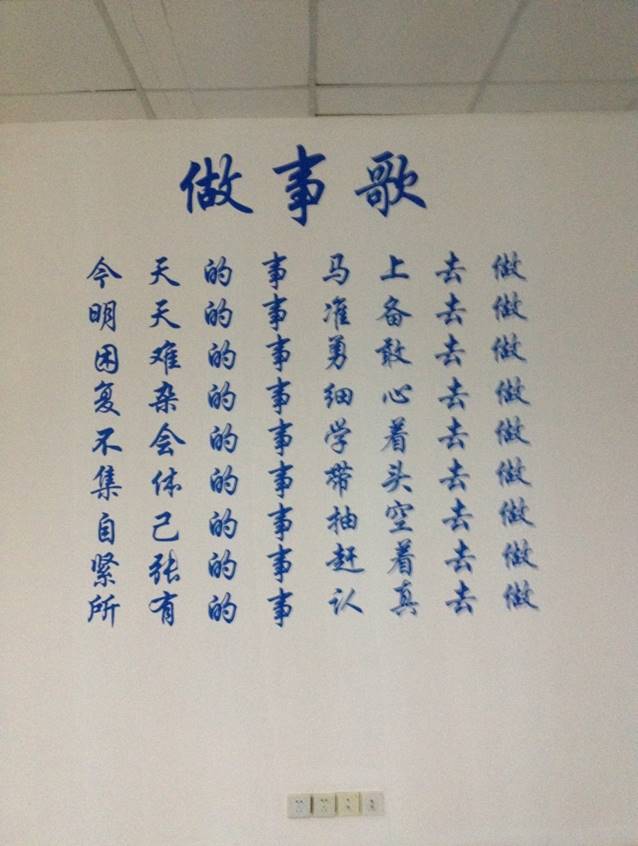 做事歌
今天的事马上去做
明天的事准备去做
困难的事勇敢去做
复杂的事细心去做
不会的事学着去做
集体的事带头去做
自己的事抽空去做
紧张的事赶着去做
所有的事认真去做